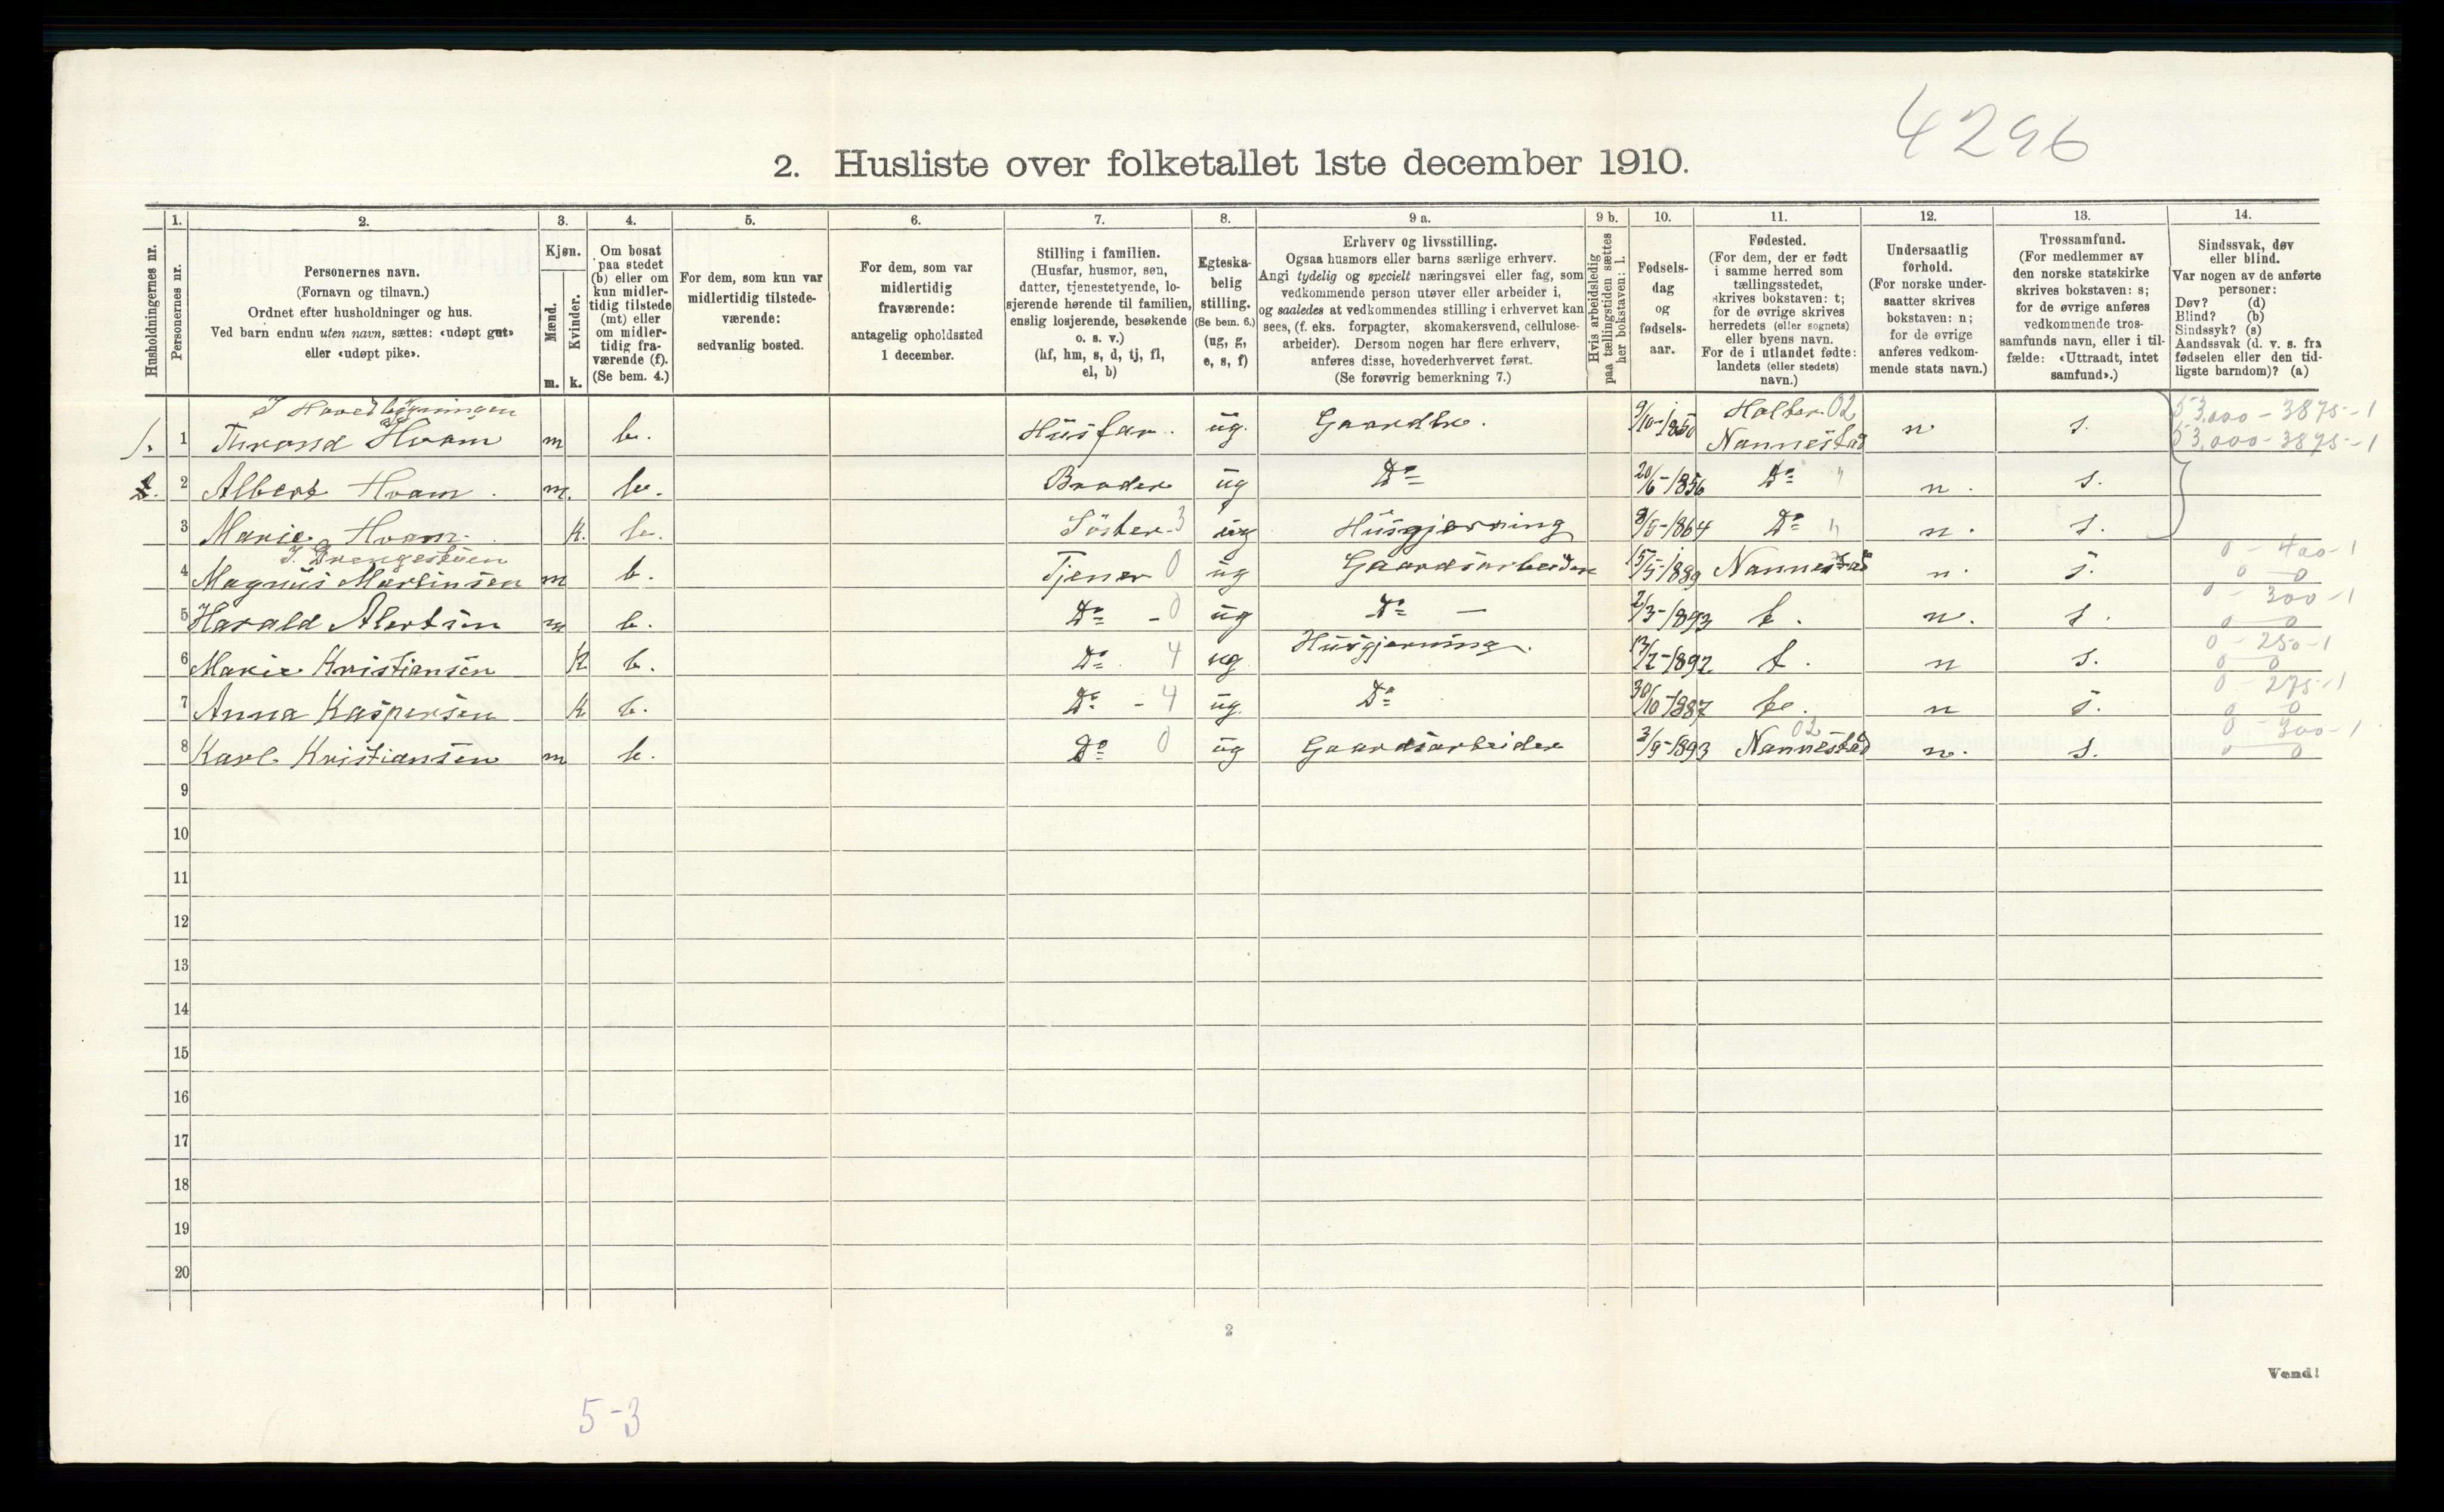 4296
2. Husliste over folketallet 1ste december 1910.
Husholdningernes nr.
1.
Personernes nr.
2.
Personernes navn.
(Fornavn og tilnavn.)
Ordnet efter husholdninger og hus.
Ved barn endnu uten navn, sættes: «udøpt gut»
eller «udøpt pike».
3.
Kjøn.
Mænd.
Kvinder.
m. k.
4.
Om bosat
paa stedet
(b) eller om
kun midler-
tidig tilstede
(mt) eller
om midler-
tidig fra-
værende (f).
(Se bem. 4.)
5.
For dem, som kun var
midlertidig tilstede-
værende:
sedvanlig bosted.
6.
For dem, som var
midlertidig
fraværende:
antagelig opholdssted
1 december.
7.
Stilling i familien.
(Husfar, husmor, søn,
datter, tjenestetyende, lo-
sjerende hørende til familien,
enslig losjerende, besøkende
o. s. v.)
(hf, hm, s, d, tj, fl,
el, b)
8.
Egteska-
belig
stilling.
(Se bem. 6.)
(ug, g,
e, s, f)
9 a.
Erhverv og livsstilling.
Ogsaa husmors eller barns særlige erhverv.
Angi tydelig og specielt næringsvei eller fag, som
vedkommende person utøver eller arbeider i,
og saaledes at vedkommendes stilling i erhvervet kan
sees, (f. eks. forpagter, skomakersvend, cellulose-
arbeider). Dersom nogen har flere erhverv,
anføres disse, hovederhvervet først.
(Se forøvrig bemerkning 7.)
9 b.
Hvis arbeidsledig
paa tællingstiden sættes
her bokstaven: l.
10.
Fødsels-
dag
og
fødsels-
aar.
11.
Fødested.
(For dem, der er født
i samme herred som
tællingsstedet,
skrives bokstaven: t;
for de øvrige skrives
herredets (eller sognets)
eller byens navn.
For de i utlandet fødte:
landets (eller stedets)
navn.)
12.
Undersaatlig
forhold.
(For norske under-
saatter skrives
bokstaven: n;
for de øvrige
anføres vedkom-
mende stats navn.)
13.
Trossamfund.
(For medlemmer av
den norske statskirke
skrives bokstaven: s;
for de øvrige anføres
vedkommende tros-
samfunds navn, eller i til-
fælde: «Uttraadt, intet
samfund».)
14.
Sindssvak, døv
eller blind.
Var nogen av de anførte
personer:
Døv? (d)
Blind? (b)
Sindssyk? (s)
Aandssvak (d. v. s. fra
fødselen eller den tid-
ligste barndom)? (a)
I Hovedbygningen
1. 1 Thrond Hvam m b. Husfar. ug. Gaardbr. 9/10-1850 Holter 02 Nannestad n s. 53,000-3875-1
53,000-3875-1
2 Albert Hvam. m. b. Broder ug Do 20/6-1856 Do " n. s.
3 Marie Hvam. K. b. Söster 3 ug Husgjerning 8/5-1864 Do " n. s.
I Drengestuen
4 Magnus Martinsen m b. Tjener 0 ug Gaardsarbeider 15/5-1889 Nannestad n. s. 0-400-1
0 0
5 Harald m b. Do - 0 ug Do — 2/3-1893 t. n. s. 0-300-1
0 0
6 Marie Kristiansen K b. Do 4 ug Husgjerning. 13/2-1892 t. n s. 0-250-1
0 0
7 Anna Kaspersen K b. Do - 4 ug. Do 30/10-1887 n s. 0-275-1
0 0
8 Karl Kristiansen m b. Do 0 ug Gaardsarbeider 3/9-1893 02 Nannestad n. s. 0-300-1
0 0
9
10
11
12
13
14
15
16
17
18
19
20
2
Vend!
5-3